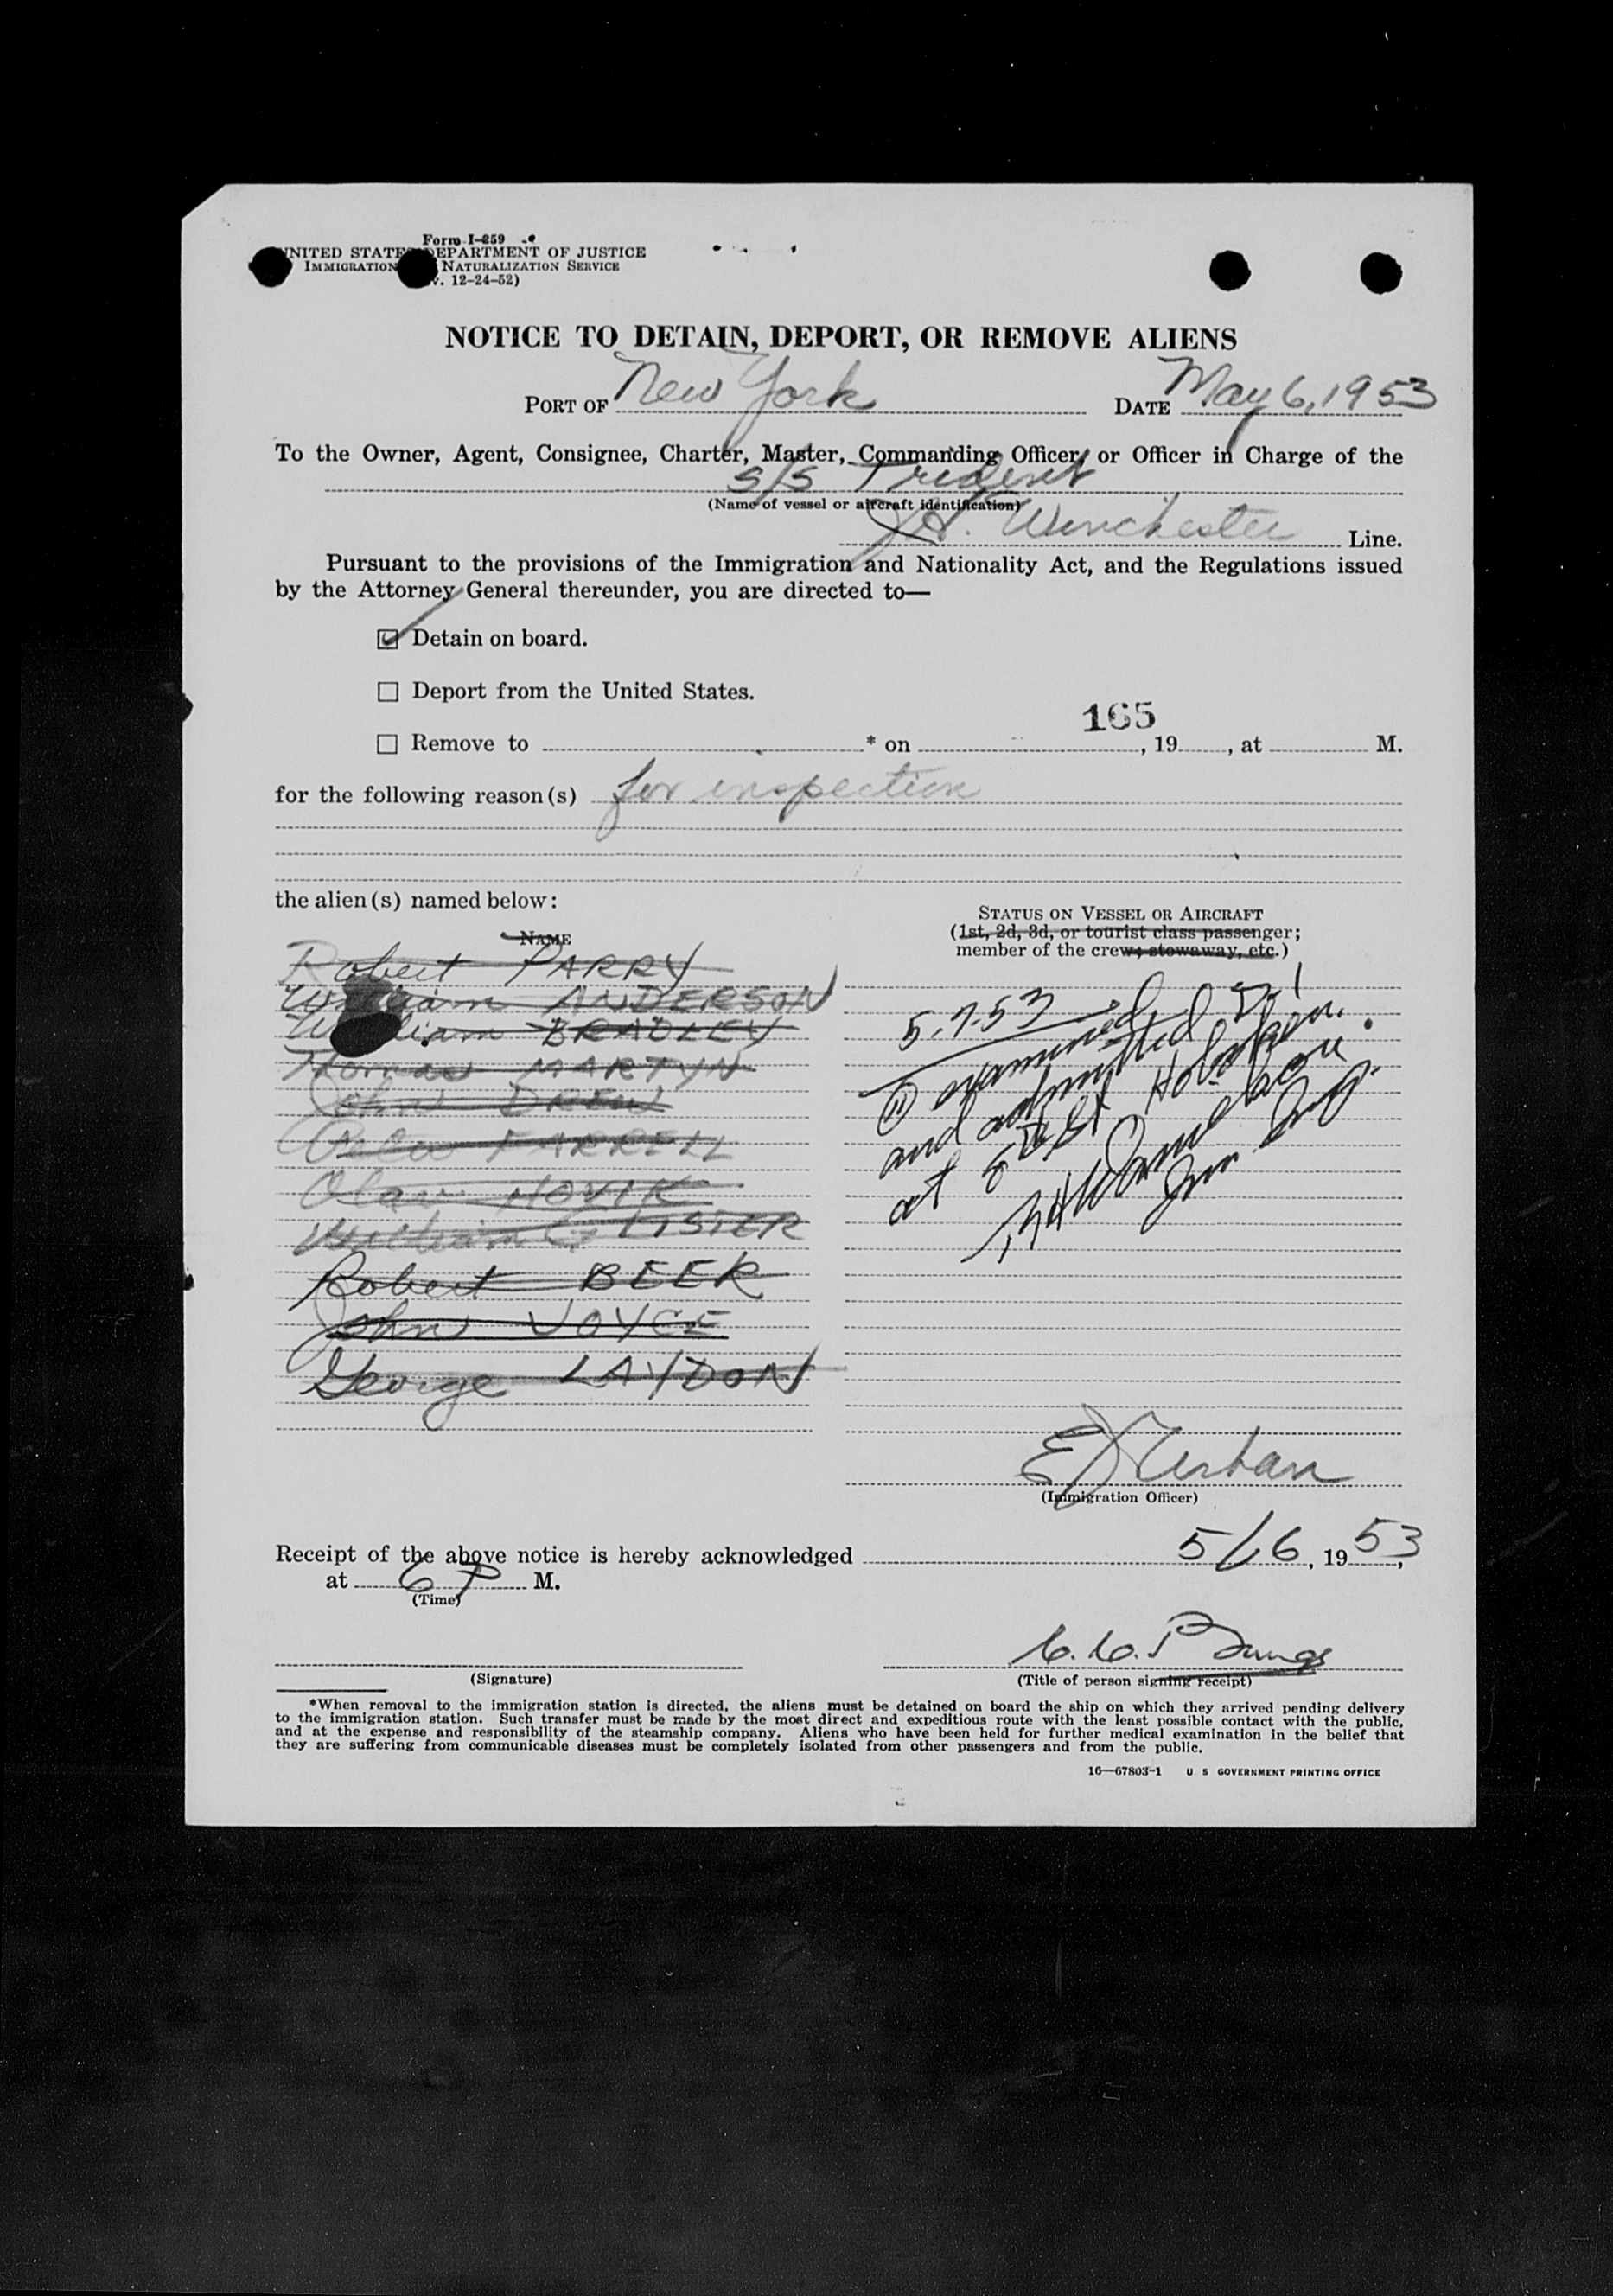 Form I-259
UNITED STATES DEPARTMENT OF JUSTICE
IMMIGRATION NATURALIZATION SERVICE
v. 12-24-52)
NOTICE TO DETAIN, DEPORT, OR REMOVE ALIENS
PORT OF New York DATE May 6, 1953
To the Owner, Agent, Consignee, Charter, Master, Commanding Officer, or Officer in Charge of the
S/S Trident
(Name of vessel or aircraft identification)
J.H. Winchester Line.
Pursuant to the provisions of the Immigration and Nationality Act, and the Regulations issued
by the Attorney General thereunder, you are directed to—
Detain on board.
Deport from the United States.
165
Remove to * on , 19 , at M.
for the following reason(s) for inspection
the alien(s) named below:
NAME
STATUS ON VESSEL OR AIRCRAFT
(1st, 2d, 3d, or tourist class passenger;
member of the crew; stowaway, etc.)
Robert PARRY
William ANDERSON
William BRADLEY
Thomas MARTYN
John DREW
FARRELL
Olav HOVIK
William LISTER
Robert BEER
John JOYCE
George LAYDON
5.7.53
examined
and admitted D-1
at 5th St Hoboken.
Imm. Insp.
E J Urban
(Immigration Officer)
Receipt of the above notice is hereby acknowledged 5/6, 1953,
at 6 P M.
(Time)
C.C.
(Signature)
(Title of person signing receipt)
*When removal to the immigration station is directed, the aliens must be detained on board the ship on which they arrived pending delivery
to the immigration station. Such transfer must be made by the most direct and expeditious route with the least possible contact with the public,
and at the expense and responsibility of the steamship company. Aliens who have been held for further medical examination in the belief that
they are suffering from communicable diseases must be completely isolated from other passengers and from the public.
16—67803-1 U. S. GOVERNMENT PRINTING OFFICE